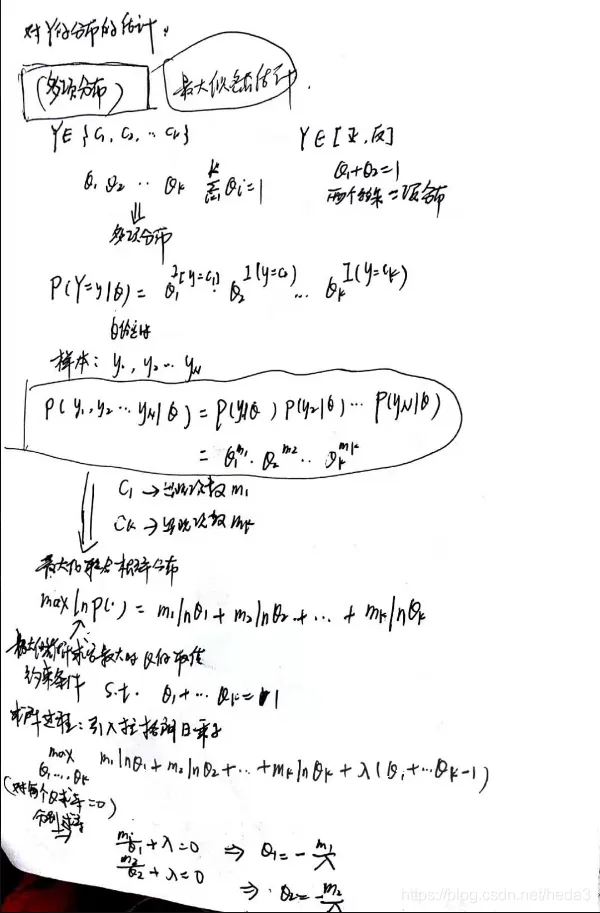 对Y的分布的估计.
(多项分布) 最大似然估计.
Y∈{C₁, C₂, ⋯ Cₖ} Y∈[正,反]
θ₁ θ₂ ⋯ θₖ Σᵢ₌₁ᵏ θᵢ=1 θ₁+θ₂=1
⇓ 两个结果二项分布
多项分布
P(Y=y|θ) = θ₁^I(y=C₁) · θ₂^I(y=C₂) ⋯ θₖ^I(y=Cₖ)
样本: y₁, y₂ ⋯ yN
P(y₁,y₂⋯yN|θ) = P(y₁|θ) P(y₂|θ) ⋯ P(yN|θ)
= θ₁^m₁ · θ₂^m₂ ⋯ θₖ^mₖ
C₁ → 出现次数 m₁
Cₖ → 出现次数 mₖ
最大化联合概率分布
max ln P(·) = m₁lnθ₁ + m₂lnθ₂ + ⋯ + mₖlnθₖ
求最大时θ的取值
约束条件 s.t. θ₁+⋯θₖ=1
求解过程: 引入拉格朗日乘子
max θ₁,⋯θₖ m₁lnθ₁+m₂lnθ₂+⋯+mₖlnθₖ+λ(θ₁+⋯θₖ-1)
(对每个θ求导=0)
分别求导
⇒ m₁/θ₁+λ=0 ⇒ θ₁=-m₁/λ
m₂/θ₂+λ=0 ⇒ θ₂=-m₂/λ
https://blog.csdn.net/heda3